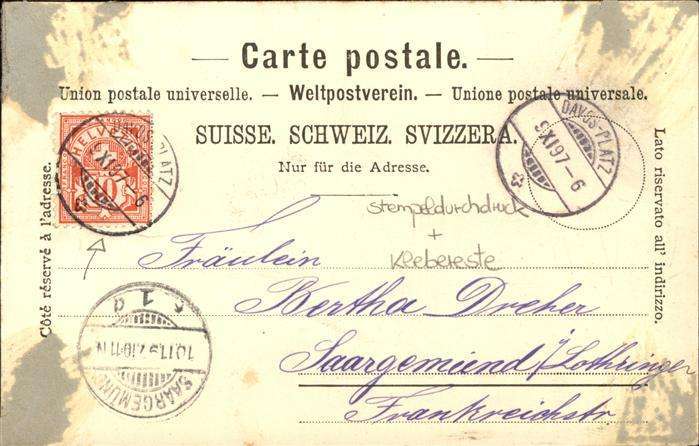 Carte postale.
Union postale universelle. — Weltpostverein. — Unione postale universale.
SUISSE. SCHWEIZ. SVIZZERA.
Nur für die Adresse.
Côté réservé à l'adresse.
Lato riservato all' indirizzo.
HELVETIA
10
DAVOS-PLATZ
9 XI 97-6
DAVOS-PLATZ
9 XI 97-6
stempeldurchdruck
+
Klebereste
Fräulein
Bertha Dreher
Saargemünd i/Lothringen
Frankreichstr
SAARGEMÜND
10/11.97.10-11N
c 1 a